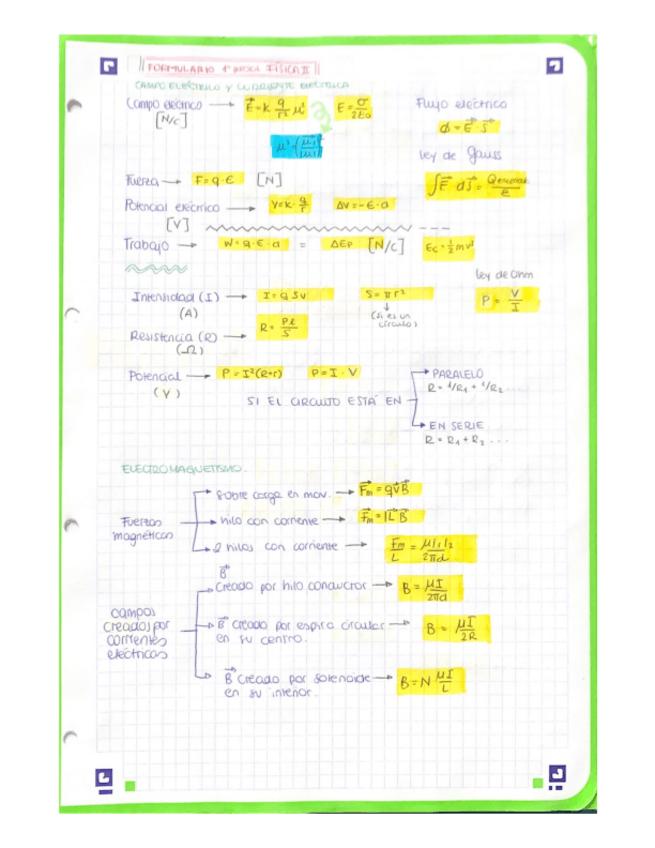 FORMULARIO 1º PARCIAL FÍSICA II
CAMPO ELÉCTRICO Y CORRIENTE ELÉCTRICA
Campo eléctrico → E⃗=K q/r² μ⃗  E=σ/2εo  Flujo eléctrico
[N/C]  ϕ=E⃗·S⃗
Ley de Gauss
Fuerza → F=q·E [N]  ∫E⃗ dS⃗=
Potencial eléctrico → V=K·q/r  ΔV=-E·d
[V]
Trabajo → W=q·E·d = ΔEp [N/C]  Ec=½mv²
Ley de Ohm
Intensidad (I) → I=qSv  S=πr²  P=V/I
(A)  (si es un círculo)
Resistencia (R) → R=Pl/S
(Ω)
Potencial → P=I²(R+r)  P=I·V
(V)
SI EL CIRCUITO ESTÁ EN
PARALELO
R=1/R₁+1/R₂...
EN SERIE
R=R₁+R₂...
ELECTROMAGNETISMO.
Fuerzas magnéticas
Sobre carga en mov. → F⃗m=qv⃗B⃗
hilo con corriente → F⃗m=IL⃗B⃗
2 hilos con corriente → Fm/L=μI₁I₂/2πd
campos creados por corrientes eléctricas
B⃗ creado por hilo conductor → B=μI/2πd
B⃗ creado por espira circular → B=μI/2R
en su centro.
B⃗ creado por solenoide → B=N μI/L
en su interior.